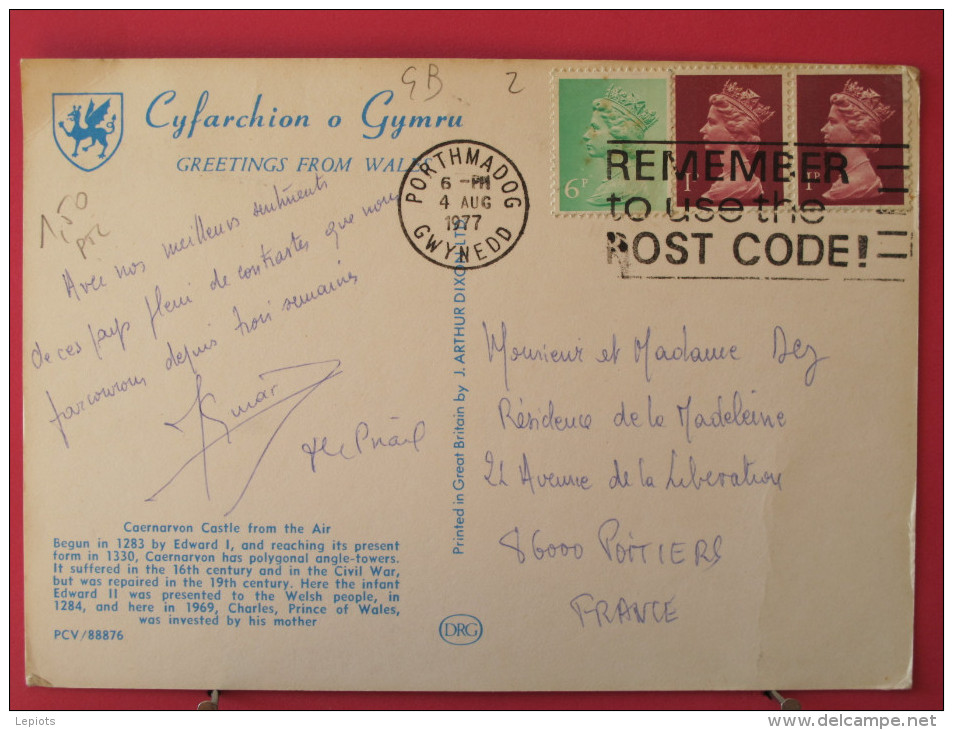 GB 2
Cyfarchion o Gymru
GREETINGS FROM WALES
1,50
PORTHMADOG
6 - PM
4 AUG
1977
GWYNEDD
6P
1P
1P
REMEMBER
to use the
POST CODE!
Avec nos meilleurs sentiments
de ces pays plein de contrastes que nous
parcourons depuis trois semaines
Caernarvon Castle from the Air
Begun in 1283 by Edward I, and reaching its present
form in 1330, Caernarvon has polygonal angle-towers.
It suffered in the 16th century and in the Civil War,
but was repaired in the 19th century. Here the infant
Edward II was presented to the Welsh people, in
1284, and here in 1969, Charles, Prince of Wales,
was invested by his mother
PCV/88876
Printed in Great Britain by J. ARTHUR DIXON LTD
DRG
Monsieur et Madame Dez
Résidence de la Madeleine
21 Avenue de la Libération
86000 POITIERS
FRANCE
Lepiots
www.delcampe.net